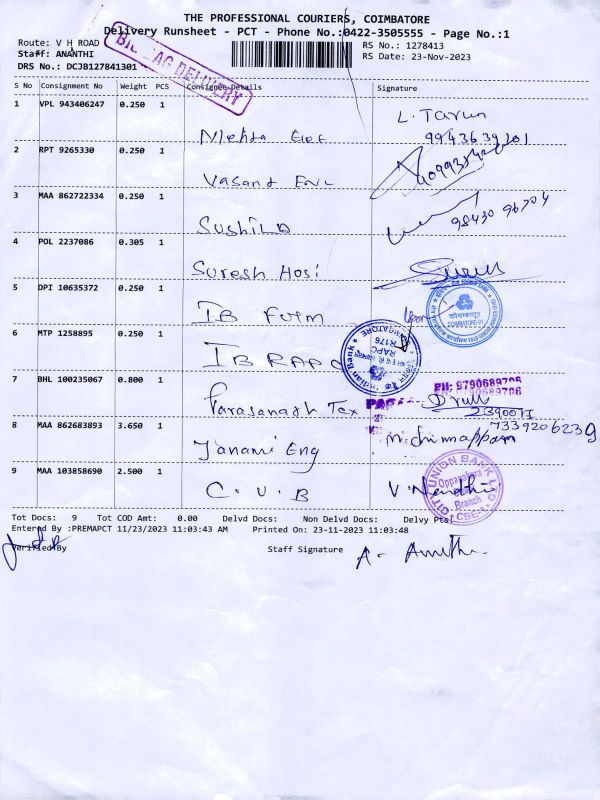 THE PROFESSIONAL COURIERS, COIMBATORE
Delivery Runsheet - PCT - Phone No.:0422-3505555 - Page No.:1
Route: V H ROAD
RS No.: 1278413
Staff: ANANTHI
RS Date: 23-Nov-2023
DRS No.: DCJB127841301
BAG DELIVERY
S No Consignment No Weight PCS Consignee Details Signature
1 VPL 943406247 0.250 1 Mehta L. Tarun
2 RPT 9265330 0.250 1 Vasand
3 MAA 862722334 0.250 1 Sushila 98430 96704
4 POL 2237086 0.305 1 Suresh Hosi
5 DPI 10635372 0.250 1 IB Furm
COIMBATORE
6 MTP 1258895 0.250 1 IB RAPC
Indian Bank
RAPC
R176
7 BHL 100235067 0.800 1 Parasanath Tex
PH: 9790689706
7339206239
8 MAA 862683893 3.650 1 Janani Eng
9 MAA 103858690 2.500 1 C.U.B
CITY UNION BANK LTD
Oppanakara
Branch
CBE-1
Tot Docs: 9 Tot COD Amt: 0.00 Delvd Docs: Non Delvd Docs: Delvy Pts:
Entered By :PREMAPCT 11/23/2023 11:03:43 AM Printed On: 23-11-2023 11:03:48
Verified By Staff Signature